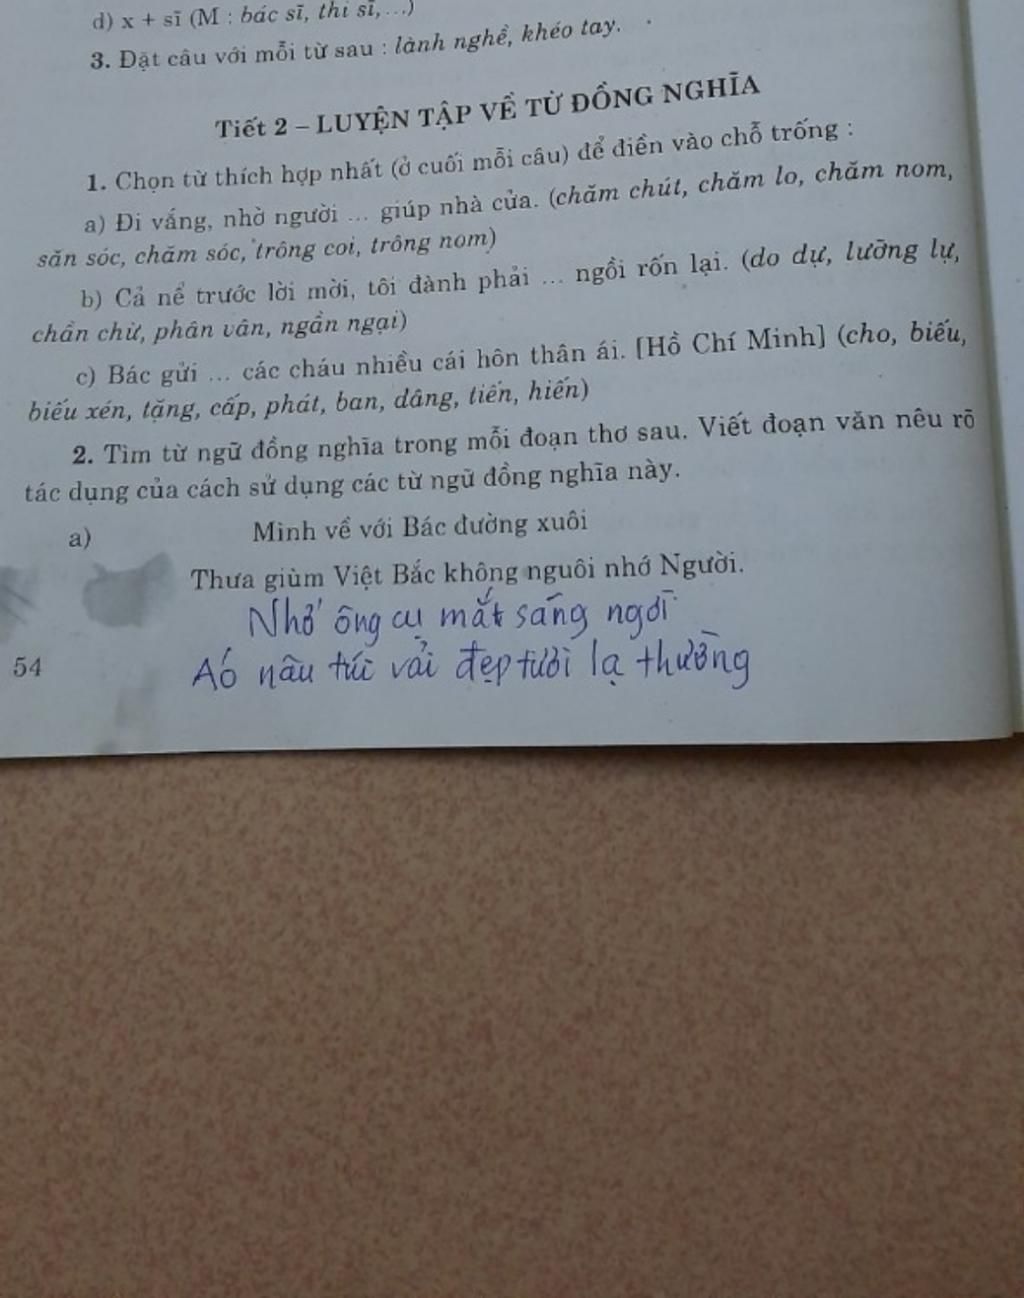 d) x + sĩ (M : bác sĩ, thi sĩ,...)
3. Đặt câu với mỗi từ sau : lành nghề, khéo tay.
Tiết 2 – LUYỆN TẬP VỀ TỪ ĐỒNG NGHĨA
1. Chọn từ thích hợp nhất (ở cuối mỗi câu) để điền vào chỗ trống :
a) Đi vắng, nhờ người ... giúp nhà cửa. (chăm chút, chăm lo, chăm nom,
săn sóc, chăm sóc, trông coi, trông nom)
b) Cả nể trước lời mời, tôi đành phải ... ngồi rốn lại. (do dự, lưỡng lự,
chần chừ, phân vân, ngần ngại)
c) Bác gửi ... các cháu nhiều cái hôn thân ái. [Hồ Chí Minh] (cho, biếu,
biếu xén, tặng, cấp, phát, ban, dâng, tiến, hiến)
2. Tìm từ ngữ đồng nghĩa trong mỗi đoạn thơ sau. Viết đoạn văn nêu rõ
tác dụng của cách sử dụng các từ ngữ đồng nghĩa này.
a) Mình về với Bác đường xuôi
Thưa giùm Việt Bắc không nguôi nhớ Người.
Nhớ ông cụ mắt sáng ngời
Aó nâu túi vải đẹp tươi lạ thường
54